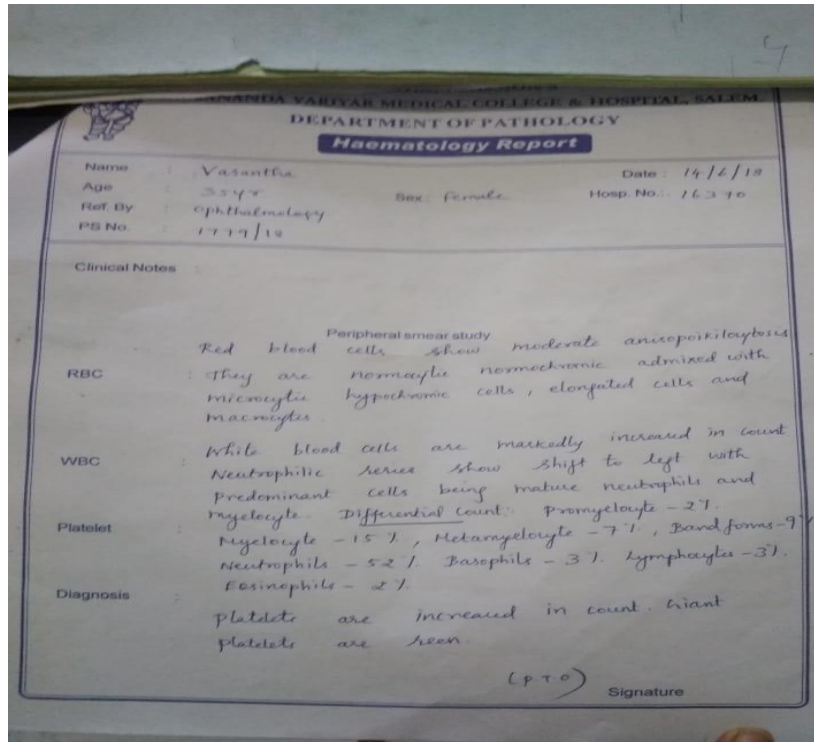 ANANDA VARIYAR MEDICAL COLLEGE & HOSPITAL, SALEM
DEPARTMENT OF PATHOLOGY
Haematology Report
Name : Vasantha Date : 14/6/18
Age : 35yr Sex : female Hosp. No.: 16370
Ref. By : Ophthalmology
PS No. : /18
Clinical Notes :
Peripheral smear study
Red blood cells show moderate anisopoikilocytosis
RBC : They are normocytic normochromic admixed with
microcytic hypochromic cells, elongated cells and
macrocytes
White blood cells are markedly increased in count
WBC : Neutrophilic series show shift to left with
predominant cells being mature neutrophils and
myelocyte. Differential Count: Promyelocyte - 2%
Platelet : Myelocyte - 15%, Metamyelocyte - 7%, Band forms - 9%
Neutrophils - 52% Basophils - 3%. Lymphocytes - 3%.
Eosinophils - 2%.
Diagnosis :
Platelets are increased in count. Giant
platelets are seen.
(P.T.O)
Signature